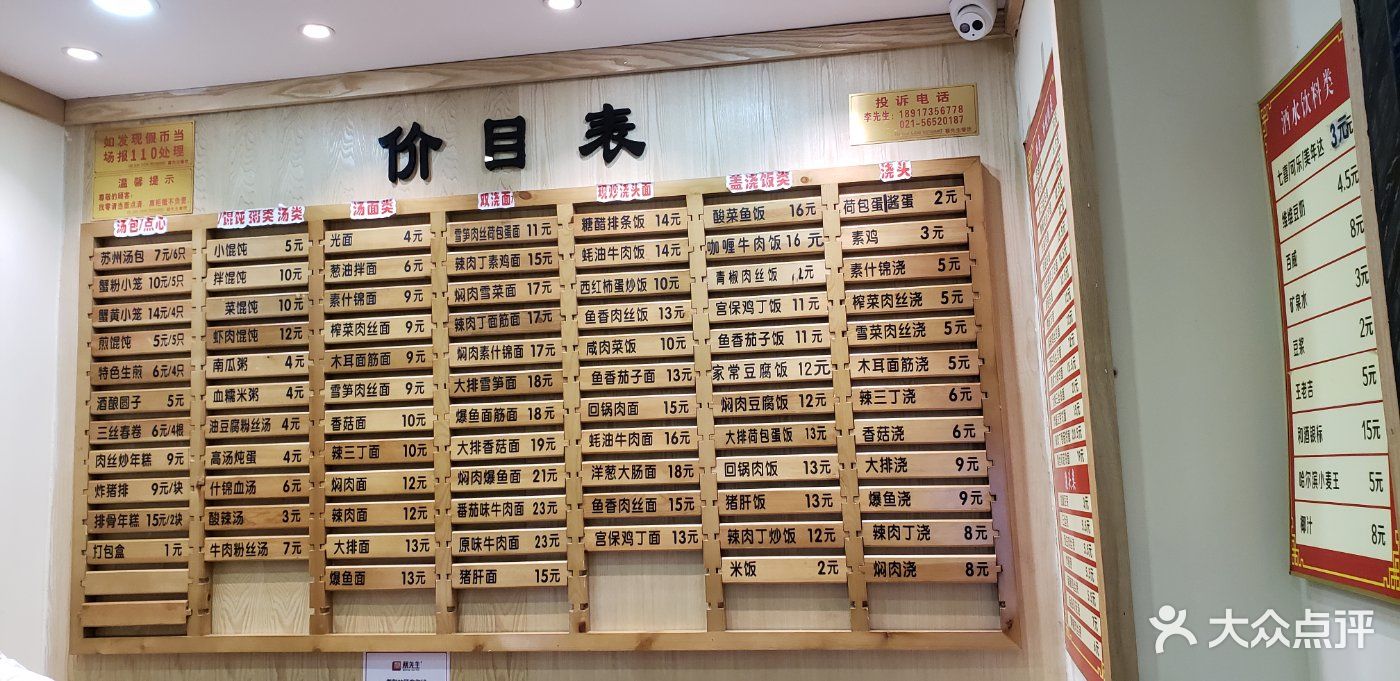 价目表
如发现假币当
场报110处理
温馨提示
尊敬的顾客：
投诉电话
李先生：18917356778
021-56520187
汤包/点心
苏州汤包 7元/6只
蟹粉小笼 10元/5只
蟹黄小笼 14元/4只
煎馄饨 5元/5只
特色生煎 6元/4只
酒酿圆子 5元
三丝春卷 6元/4根
肉丝炒年糕 9元
炸猪排 9元/块
排骨年糕 15元/2块
打包盒 1元
馄饨粥类 汤类
小馄饨 5元
拌馄饨 10元
菜馄饨 10元
虾肉馄饨 12元
南瓜粥 4元
血糯米粥 4元
油豆腐粉丝汤 4元
高汤炖蛋 4元
什锦血汤 6元
酸辣汤 3元
牛肉粉丝汤 7元
汤面类
光面 4元
葱油拌面 6元
素什锦面 9元
榨菜肉丝面 9元
木耳面筋面 9元
雪笋肉丝面 9元
香菇面 10元
辣三丁面 10元
焖肉面 12元
辣肉面 12元
大排面 13元
爆鱼面 13元
双浇面
雪笋肉丝荷包蛋面 11元
辣肉丁素鸡面 15元
焖肉雪菜面 17元
辣肉丁面筋面 17元
焖肉素什锦面 17元
大排雪笋面 18元
爆鱼面筋面 18元
大排香菇面 19元
焖肉爆鱼面 21元
番茄味牛肉面 23元
原味牛肉面 23元
猪肝面 15元
现炒浇头面
糖醋排条饭 14元
蚝油牛肉饭 14元
西红柿蛋炒饭 10元
鱼香肉丝饭 13元
咸肉菜饭 10元
鱼香茄子面 13元
回锅肉面 15元
蚝油牛肉面 16元
洋葱大肠面 18元
鱼香肉丝面 15元
宫保鸡丁面 13元
盖浇饭类
酸菜鱼饭 16元
咖喱牛肉饭 16元
青椒肉丝饭 12元
宫保鸡丁饭 11元
鱼香茄子饭 11元
家常豆腐饭 12元
焖肉豆腐饭 12元
大排荷包蛋饭 13元
回锅肉饭 13元
猪肝饭 13元
辣肉丁炒饭 12元
米饭 2元
浇头
荷包蛋|酱蛋 2元
素鸡 3元
素什锦浇 5元
榨菜肉丝浇 5元
雪菜肉丝浇 5元
木耳面筋浇 5元
辣三丁浇 6元
香菇浇 6元
大排浇 9元
爆鱼浇 9元
辣肉丁浇 8元
焖肉浇 8元
酒水饮料类
七喜/可乐/美年达 3元
维维豆奶 4.5元
百威 8元
矿泉水 3元
豆浆 2元
王老吉 5元
和酒银标 15元
哈尔滨小麦王 5元
椰汁 8元
大众点评